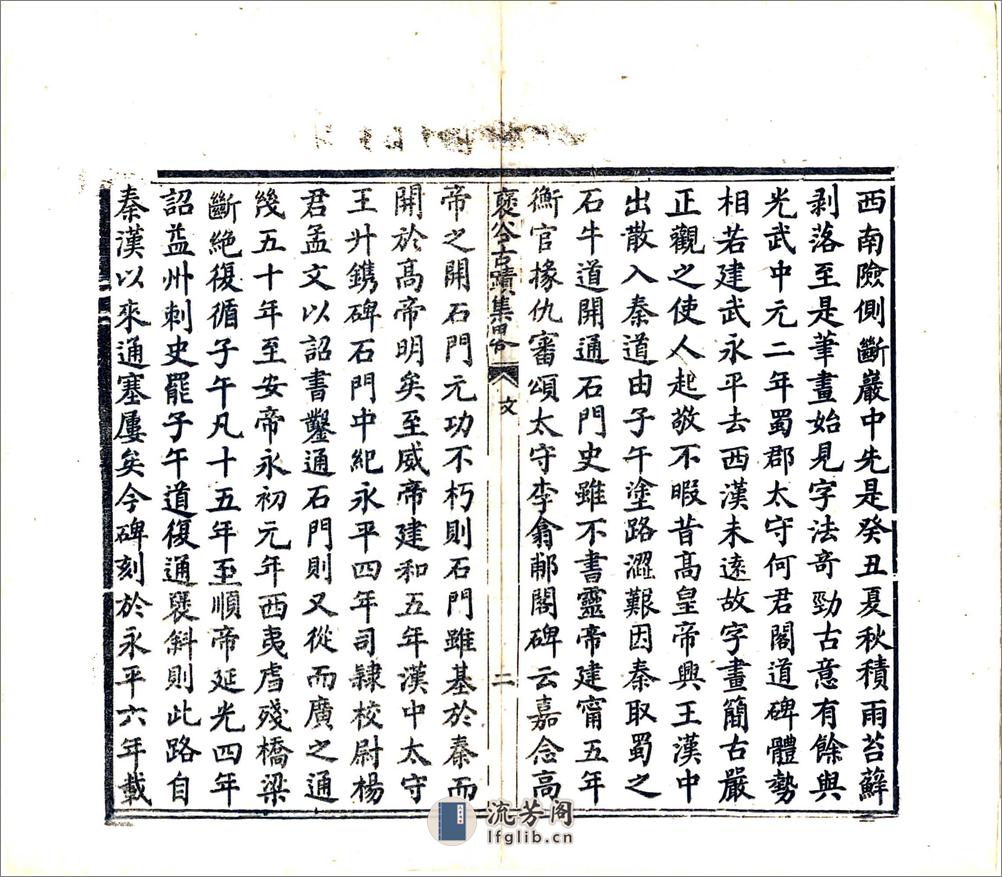 西南險側斷巖中先是癸丑夏秋積雨苔蘚
剥落至是筆畫始見字法奇勁古意有餘與
光武中元二年蜀郡太守何君閣道碑體勢
相若建武永平去西漢未遠故字畫簡古嚴
正觀之使人起敬不暇昔高皇帝興王漢中
出散入秦道由子午塗路澀艱因秦取蜀之
石牛道開通石門史雖不書靈帝建甯五年
衡官掾仇審頌太守李翕郙閣碑云嘉念高
褒谷古蹟集畧
文
二
帝之開石門元功不朽則石門雖基於秦而
開於高帝明矣至威帝建和五年漢中太守
王升鐫碑石門中紀永平四年司隸校尉楊
君孟文以詔書鑿通石門則又從而廣之通
幾五十年至安帝永初元年西夷虐殘橋梁
斷絶復循子午凡十五年至順帝延光四年
詔益州刺史罷子午道復通褒斜則此路自
秦漢以來通塞屢矣今碑刻於永平六年載
流芳阁
lfglib.cn